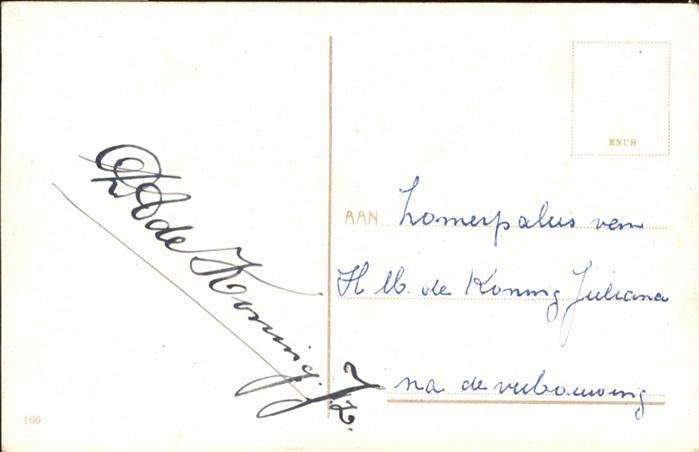 de Koning Jz.
KNUB
AAN zomerpaleis van
H M. de Koning Juliana
na de verbouwing
166